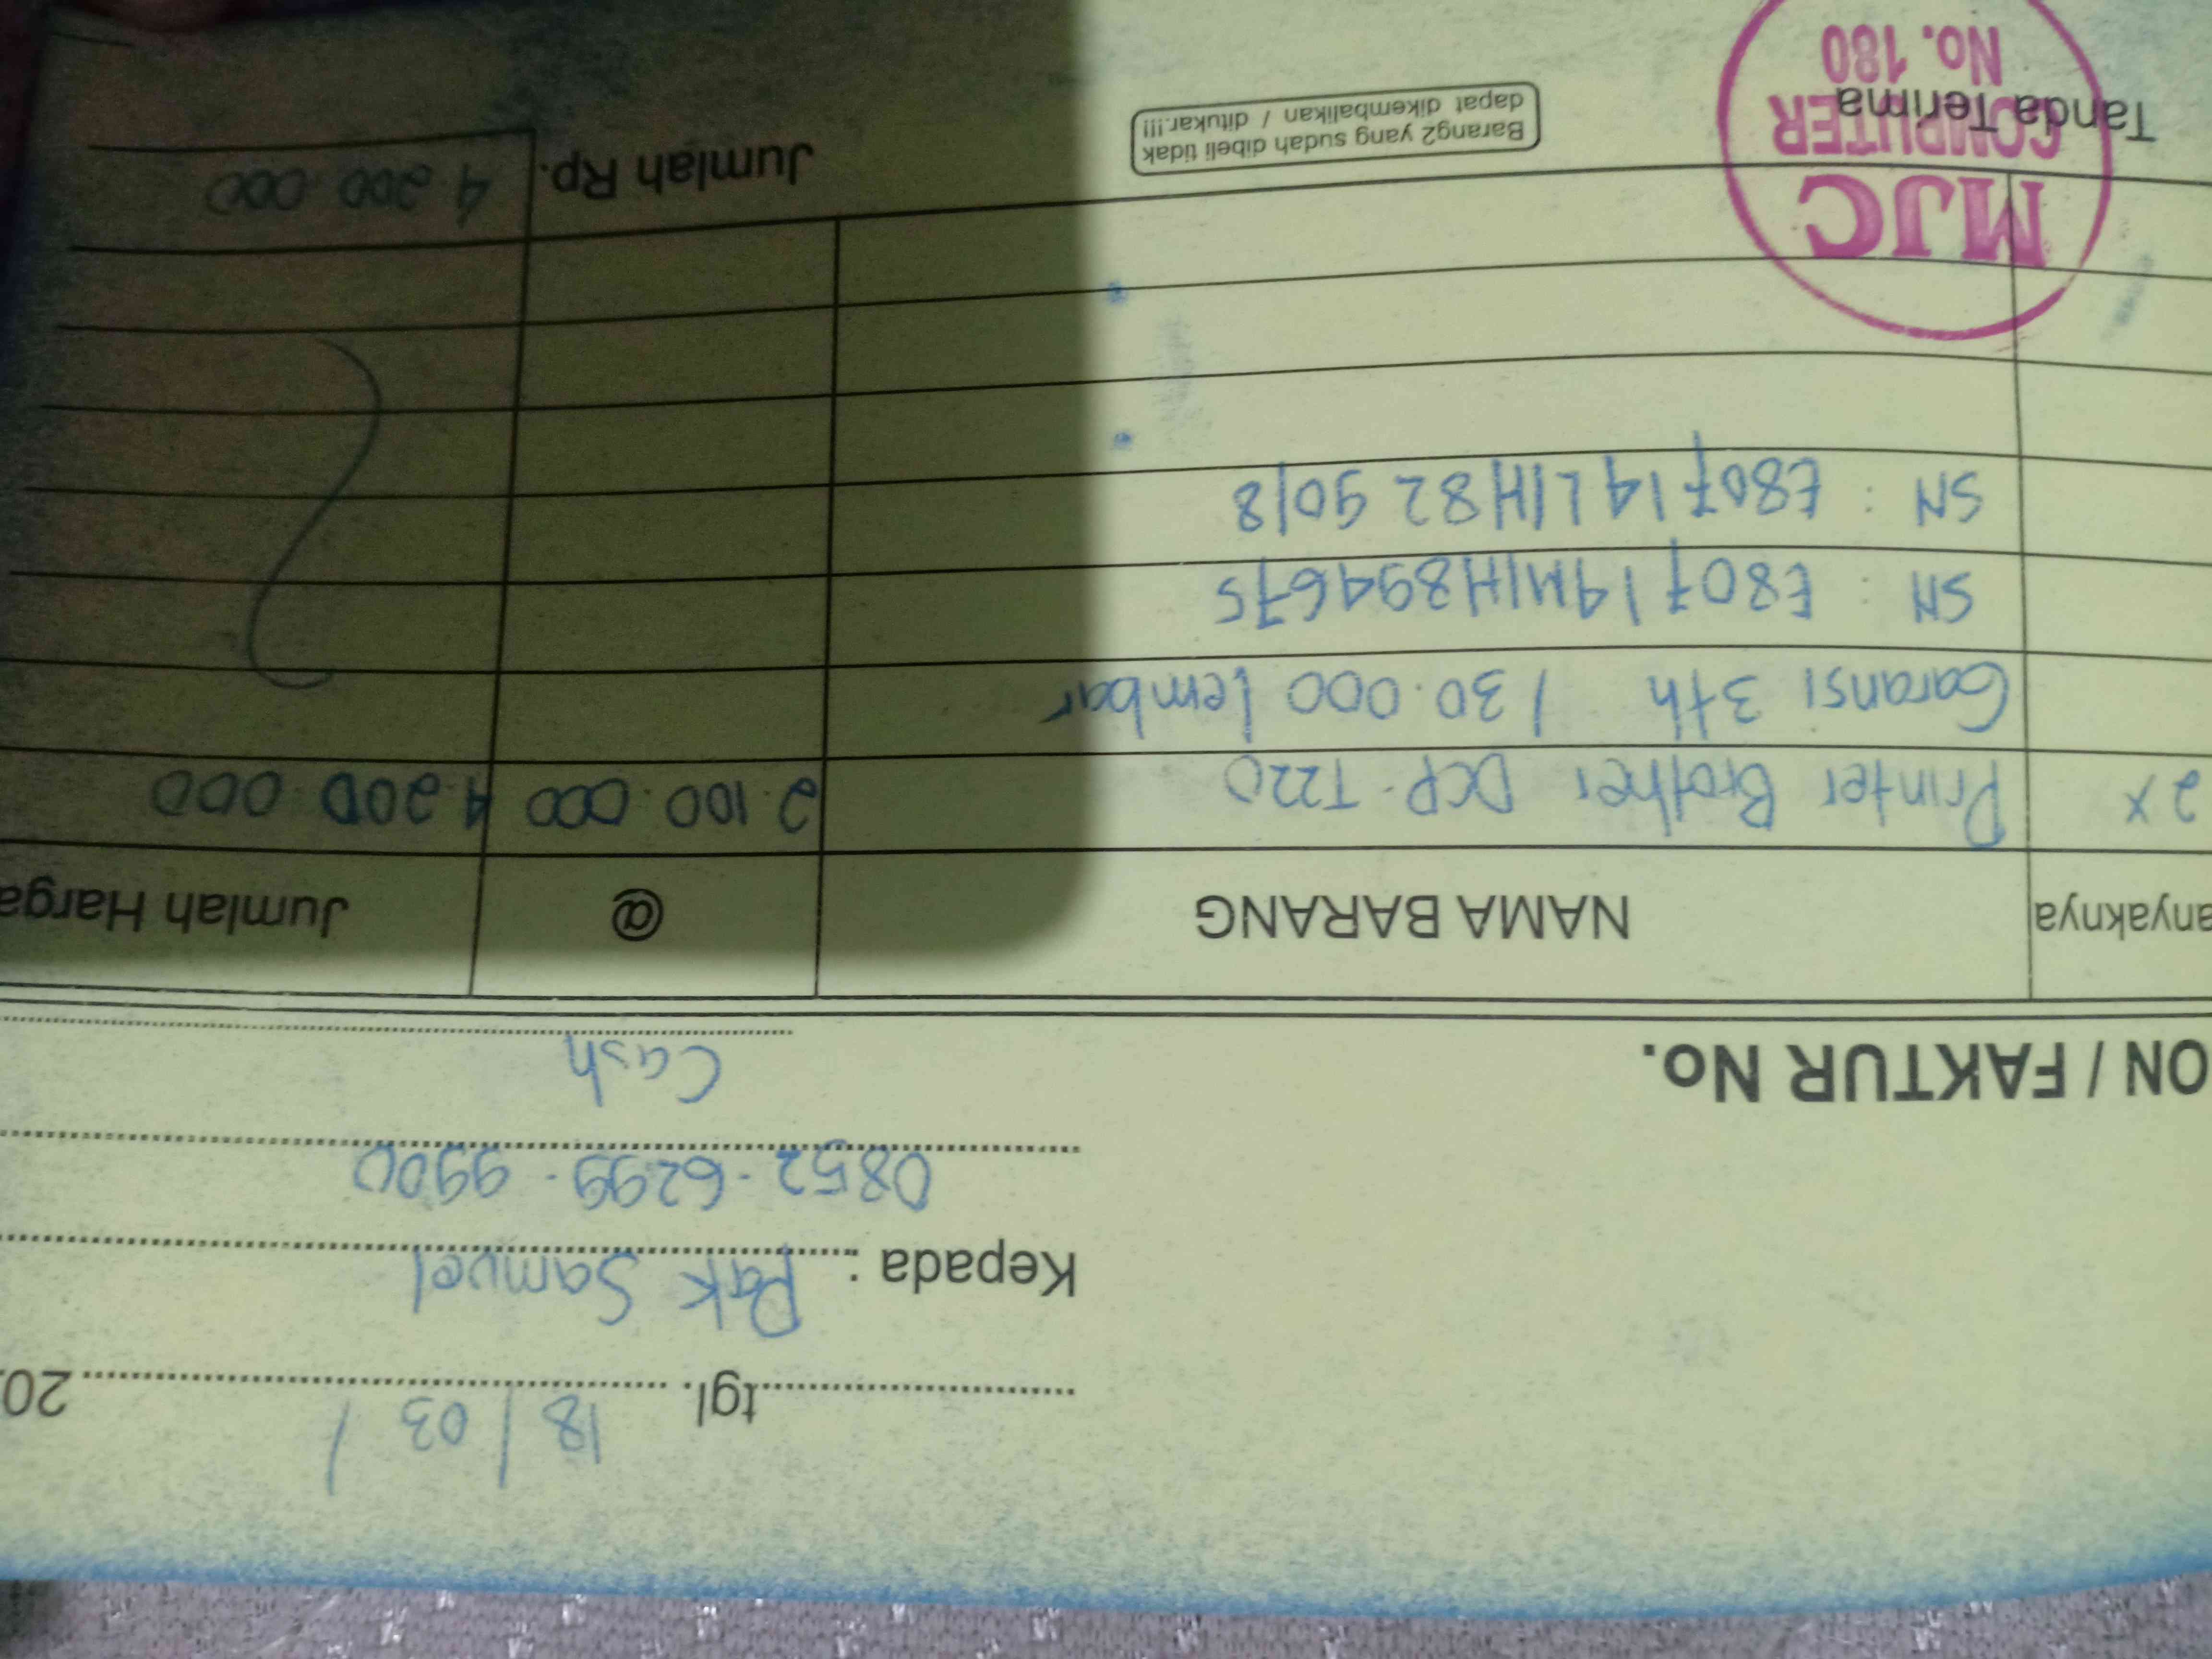 tgl. 18 / 03 / 20
Kepada : Pak Samuel
0852-6299-9900
Cash
ON / FAKTUR No.
anyaknya NAMA BARANG @ Jumlah Harga
2x Printer Brother DCP-T220 2.100.000 4.200.000
Garansi 3th / 30.000 lembar
SN : E80719M1H894675
SN : E80719L1H829018
Tanda Terima
Barang2 yang sudah dibeli tidak
dapat dikembalikan / ditukar.!!!
Jumlah Rp. 4.200.000
MJC
COMPUTER
No. 180